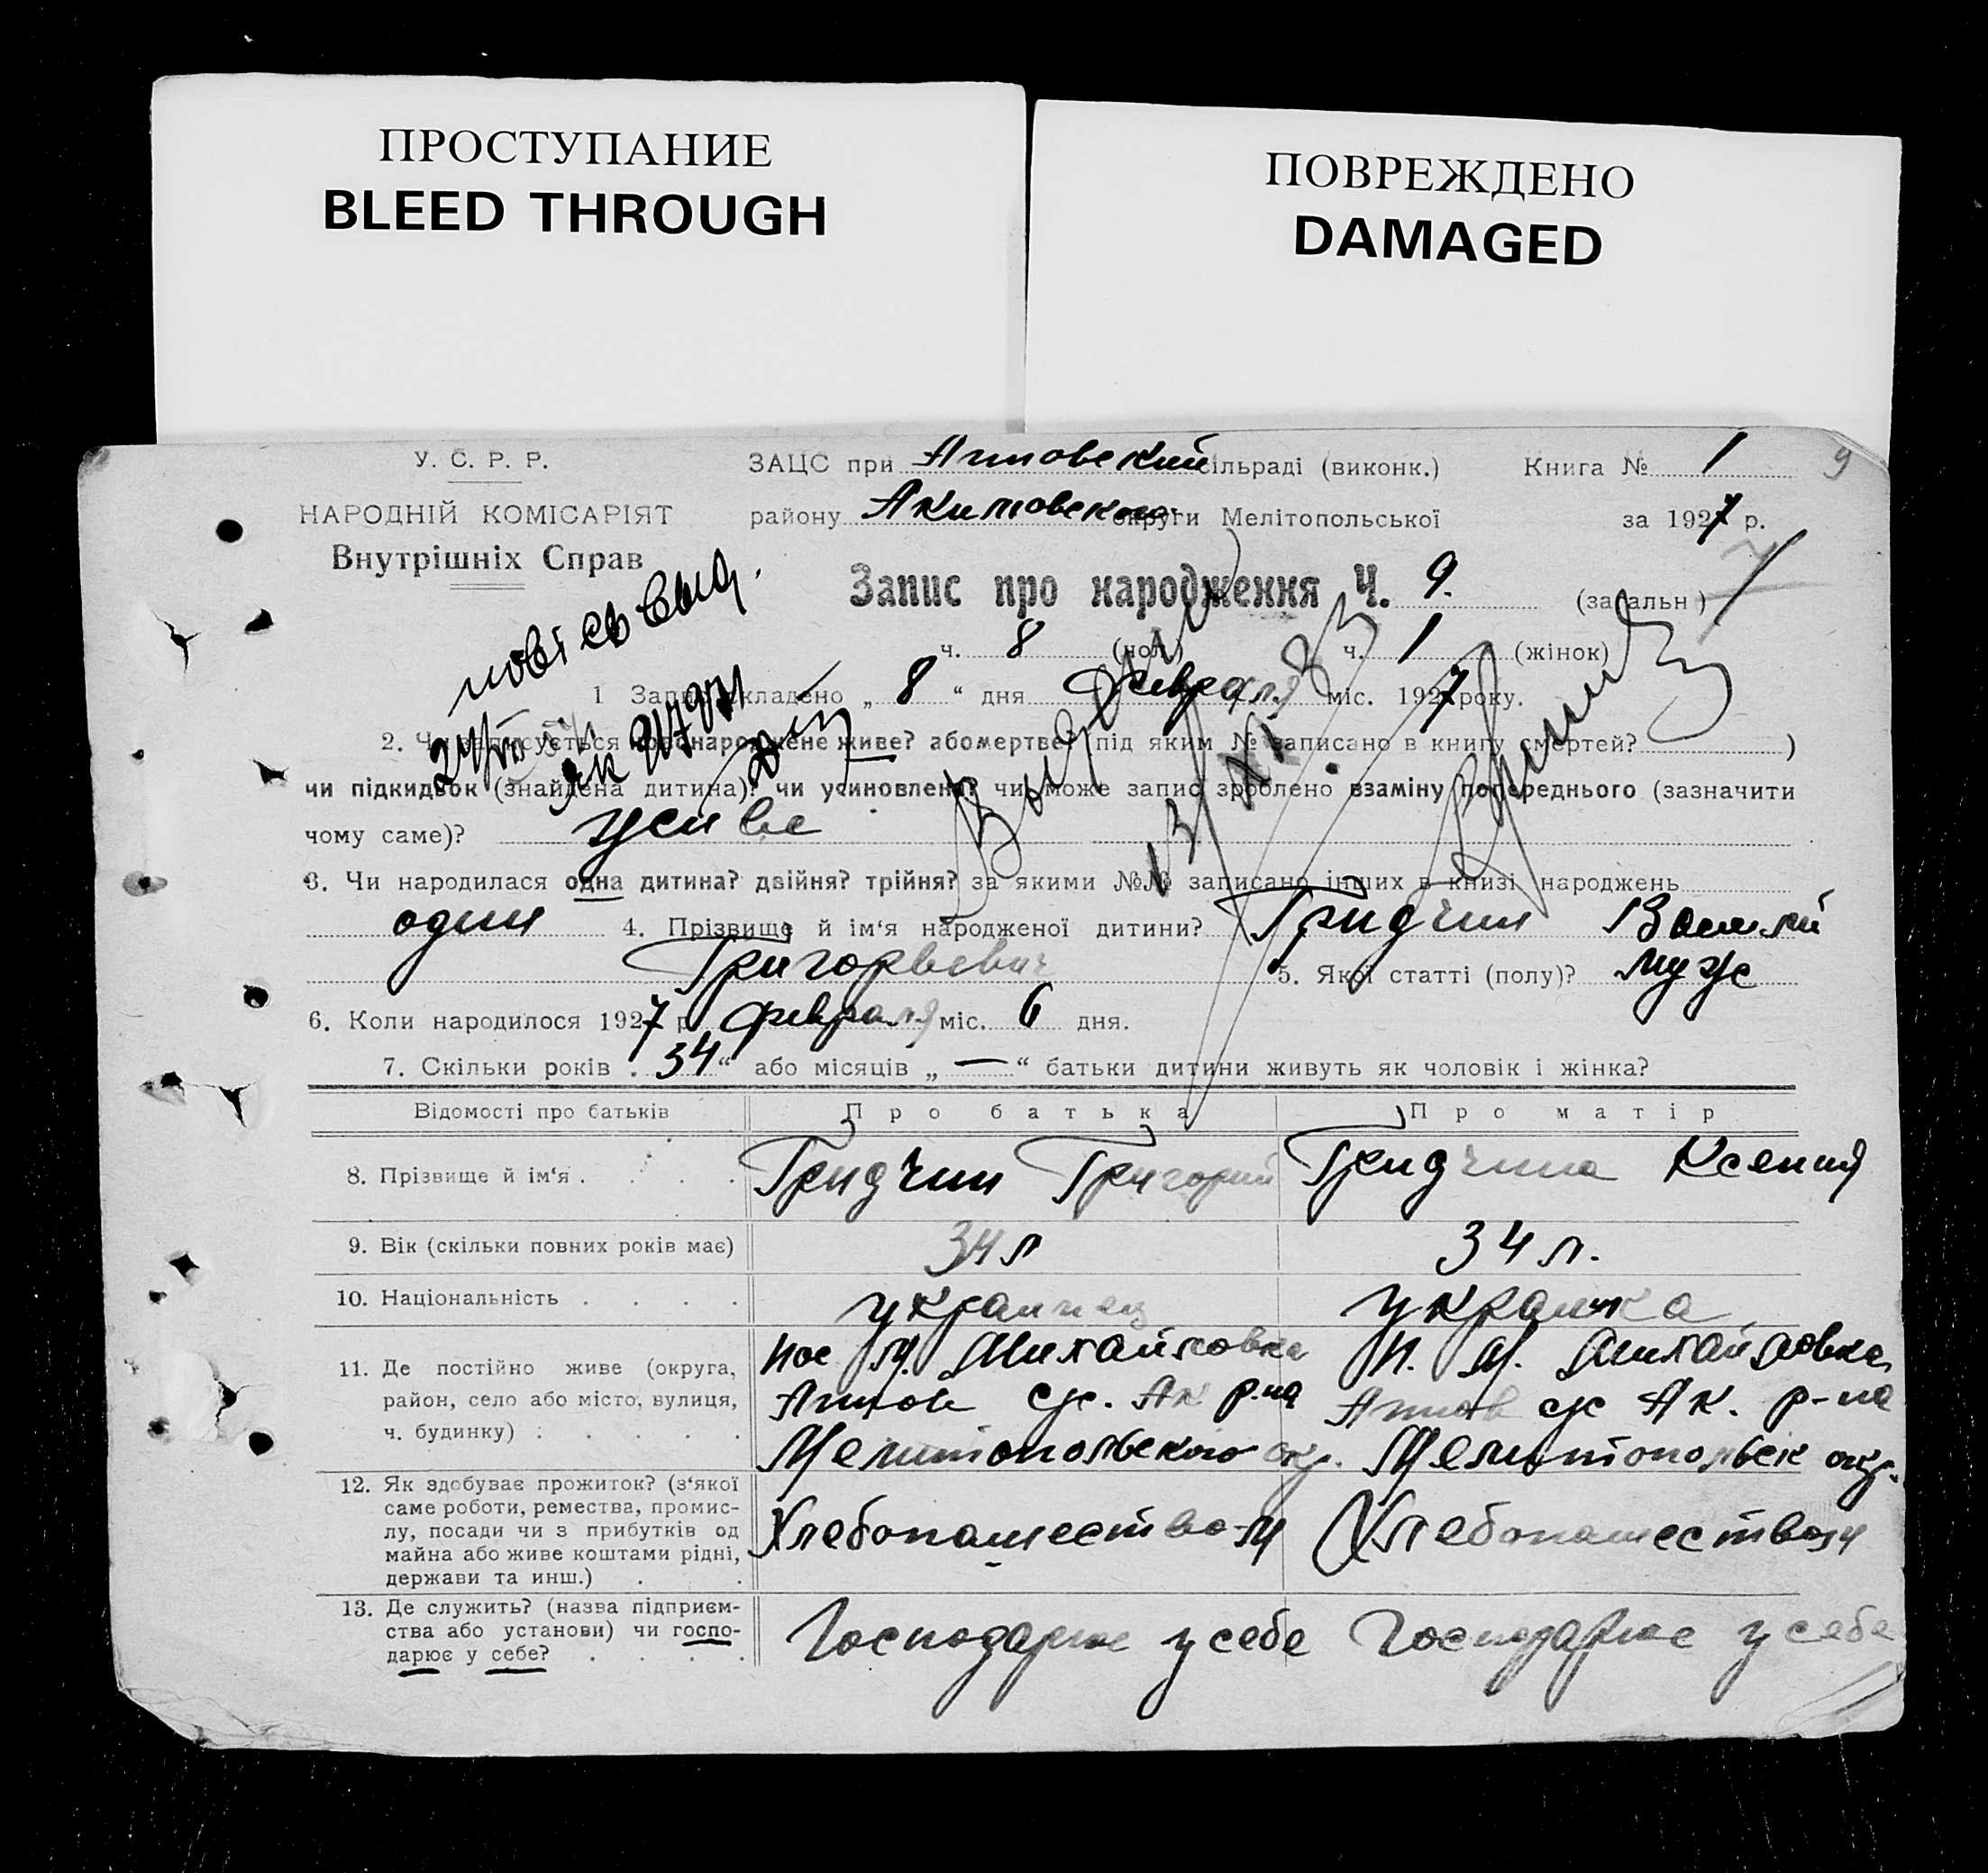 ПРОСТУПАНИЕ
BLEED THROUGH
ПОВРЕЖДЕНО
DAMAGED
У. С. Р. Р.
НАРОДНІЙ КОМІСАРІЯТ
Внутрішніх Справ
ЗАЦС при сільраді (виконк.) Книга № 1 9
району Акимовского округи Мелітопольської за 1927 р.
Запис про народження Ч. 9. (загальн)
ч. 8 (чол.) ч. 1 (жінок)
1 Запис складено „ 8 “ дня Февраля міс. 1927 року.
2. Чи записується новонароджене живе? або мертве? (під яким № записано в книгу смертей? )
чи підкидьок (знайдена дитина)? чи усиновлена? чи може запис зроблено взаміну попереднього (зазначити
чому саме)? живе
3. Чи народилася одна дитина? двійня? трійня? за якими №№ записано інших в книзі народжень
один 4. Прізвище й ім‘я народженої дитини? Гридчин Василий
Григорьевич 5. Якої статті (полу)? муж
6. Коли народилося 1927 р. февраля міс. 6 дня.
7. Скільки років „ 34 “ або місяців „ — “ батьки дитини живуть як чоловік і жінка?
Відомості про батьків Про батька Про матір
8. Прізвище й ім‘я . . . . Гридчин Григорий Гридчина Ксения
9. Вік (скільки повних років має) 34 л 34 л.
10. Національність . . . . украинец украинка
11. Де постійно живе (округа, район, село або місто, вулиця, ч. будинку) . . . . .
пос М. Михайловка П. М. Михайловка
с/с. Ак р-на с/с Ак. р-на
Мелитопольского окр. Мелитопольск окр.
12. Як здобуває прожиток? (з‘якої саме роботи, ремества, промислу, посади чи з прибутків од майна або живе коштами рідні, держави та инш.) . .
Хлебопашеством Хлебопашеством
13. Де служить? (назва підприємства або установи) чи господарює у себе? . . . .
Господарює у себе Господарює у себе